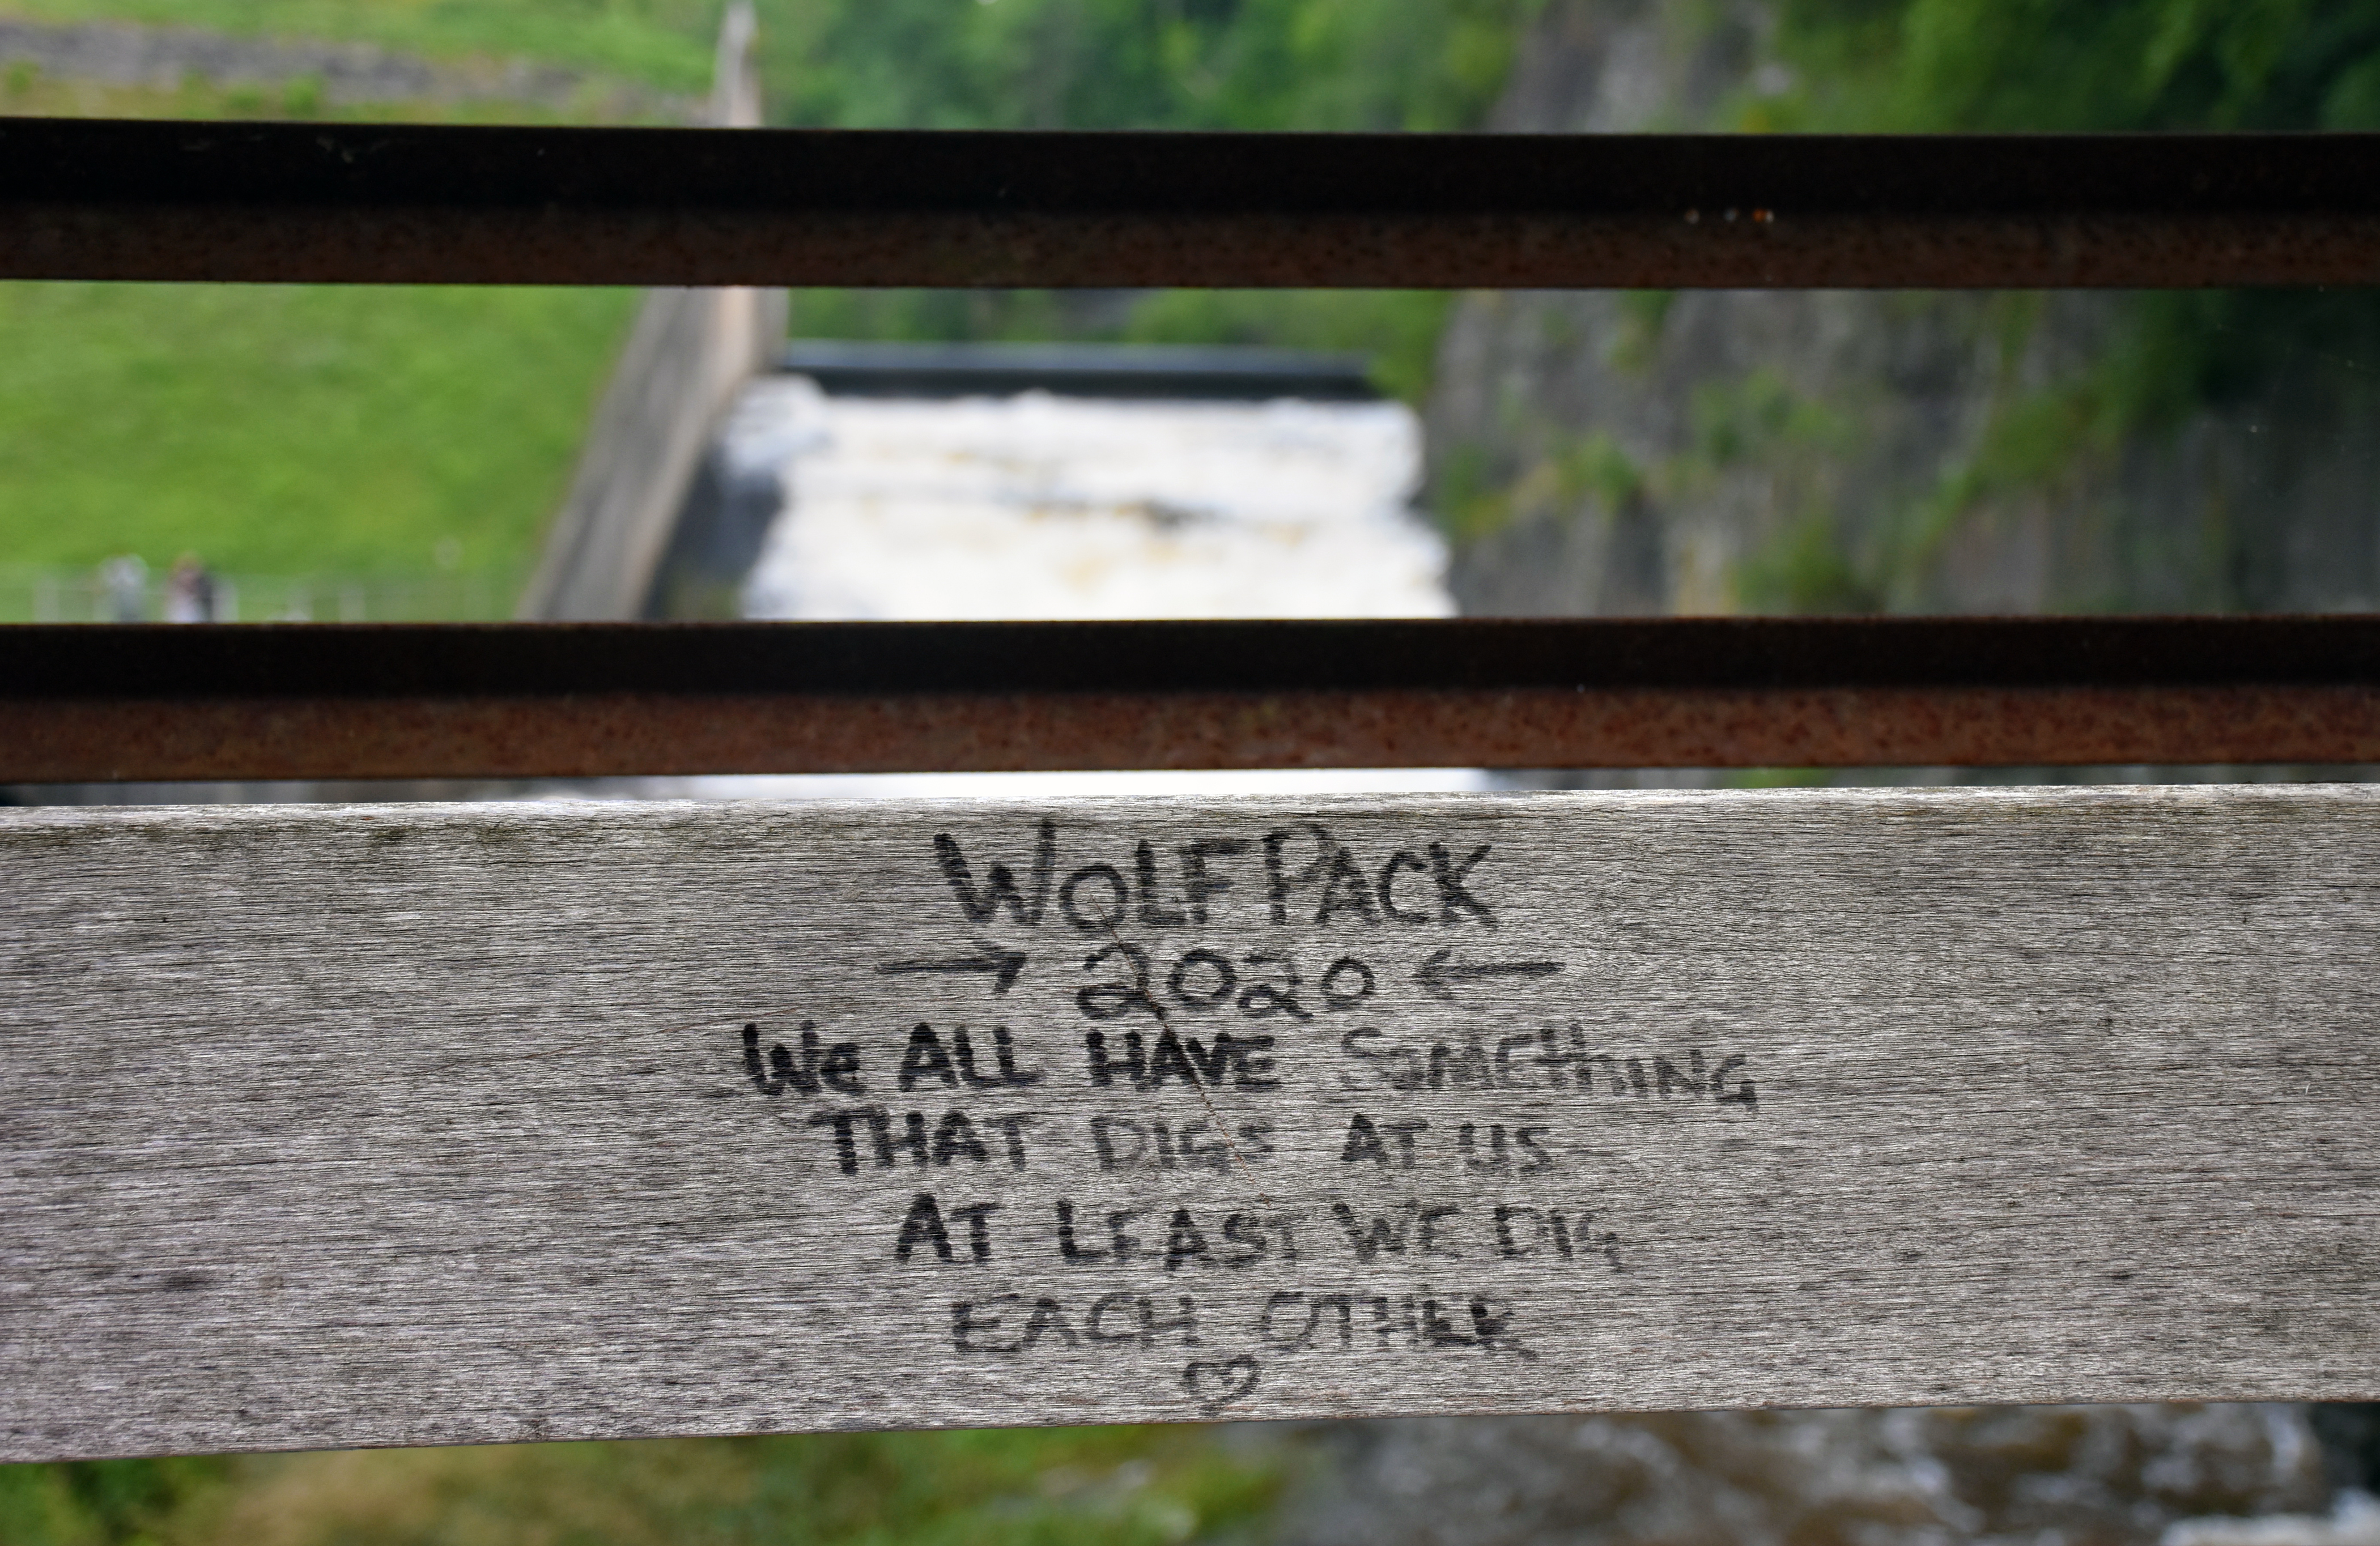 WOLF PACK
→ 2020 ←
We ALL HAVE SomEthING
THAT DIGS AT US
AT LEAST WE DIG
EACH OTHER
♡